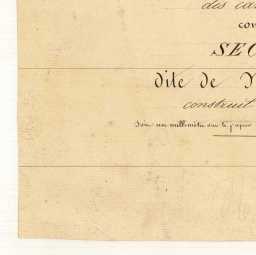 des ca
con
SEC
dite de
construit
Soit un millimètre sur le papier